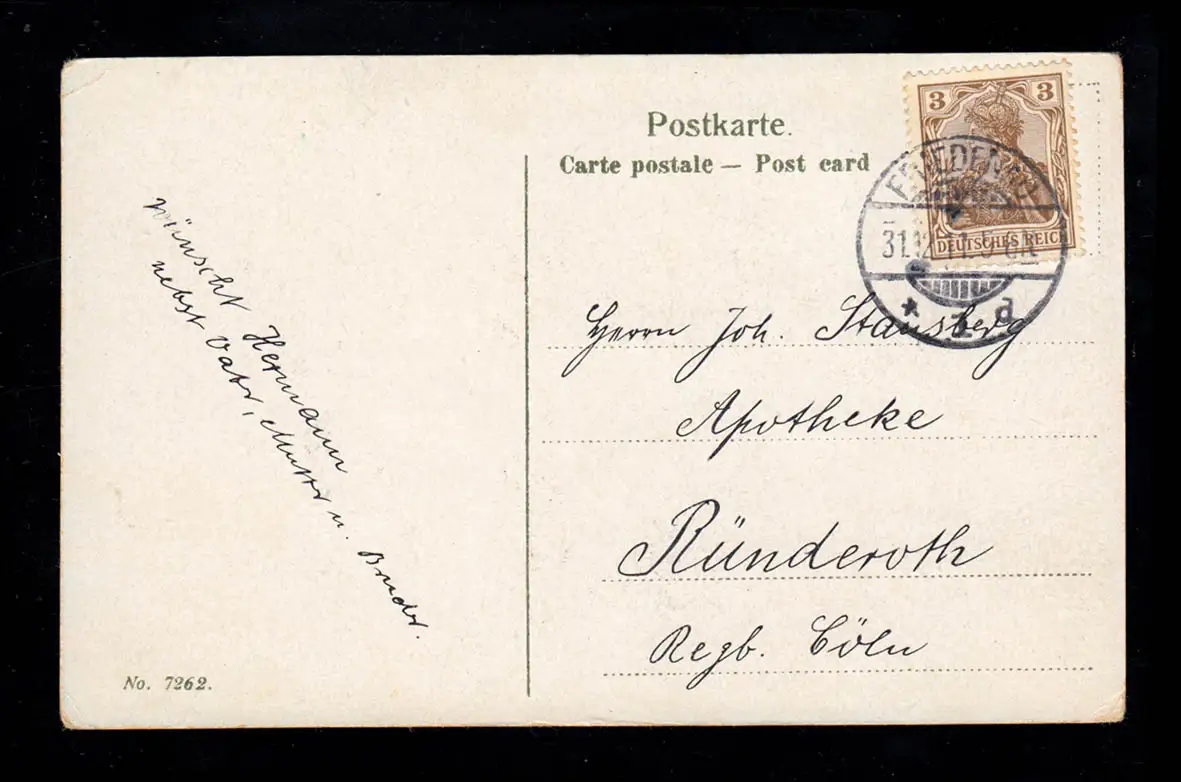 Postkarte.
Carte postale — Post card
3 3
DEUTSCHES REICH
FRIEDENAU
31.12.11.5-6N.
* 1 d
wünscht Hermann
nebst Vater, Mutter u. Bruder.
Herrn Joh. Stausberg
Apotheke
Ründeroth
Regb. Cöln
No. 7262.